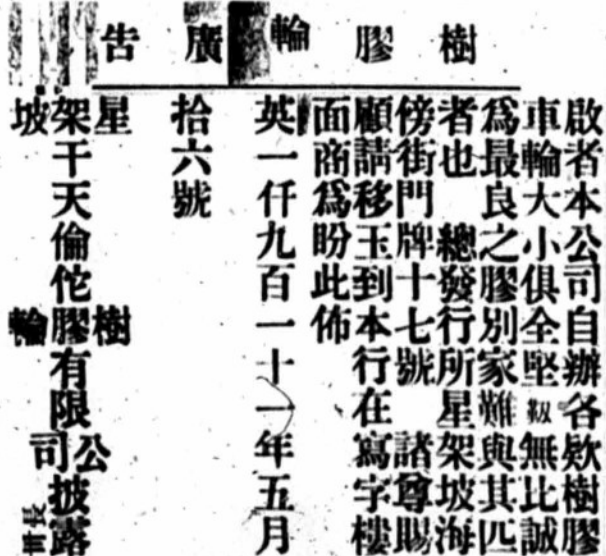 樹膠輪廣告
啟者本公司自辦各欵樹膠
車輪大小俱全堅靱無比誠
爲最良之膠別家難與其匹
者也 總發行所星架坡海
傍街門牌十七號 諸尊賜
顧請移玉到本行在寫字樓
面商爲盼此佈
英一仟九百一十一年五月
拾六號
星架坡干天倫佗樹膠輪有限公司披露